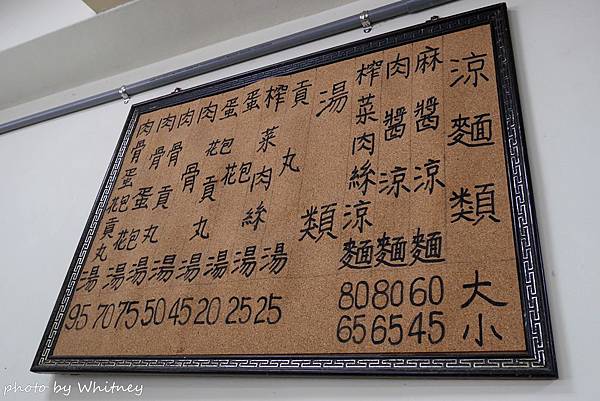 涼麵類 大 小
麻醬涼麵 60 45
肉醬涼麵 80 65
榨菜肉絲涼麵 80 65
湯類
貢丸湯 25
榨菜肉絲湯 25
蛋包花湯 20
蛋包花貢丸湯 45
肉骨湯 50
肉骨貢丸湯 75
肉骨蛋包花湯 70
肉骨蛋包花貢丸湯 95
photo by Whitney